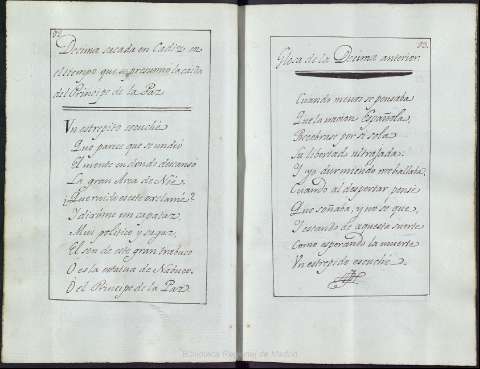 92.
Decima sacada en Cadiz en
el tiempo que se presumio la caida
del Principe de la Paz
Un estrepito escuché
Que parece que se undió
El monte en donde descansó
La gran Arca de Noé.
¿Que ruido es este exclamé?
Y dixome un capataz
Muy politico y sagaz
El son de este gran trabuco
O es la estatua de Nabuco.
O el Principe de la Paz.
93.
Glosa de la Decima anterior
Cuando menos se pensaba
Que la nacion Española,
Recobrase por si sola
Su libertad ultrajada:
Y yo durmiendo me hallaba,
Cuando al despertar pensé
Que soñaba, y no se que,
Y estando de aquesta suerte
Como esperando la muerte
Un estrepito escuché.
Biblioteca Regional de Madrid